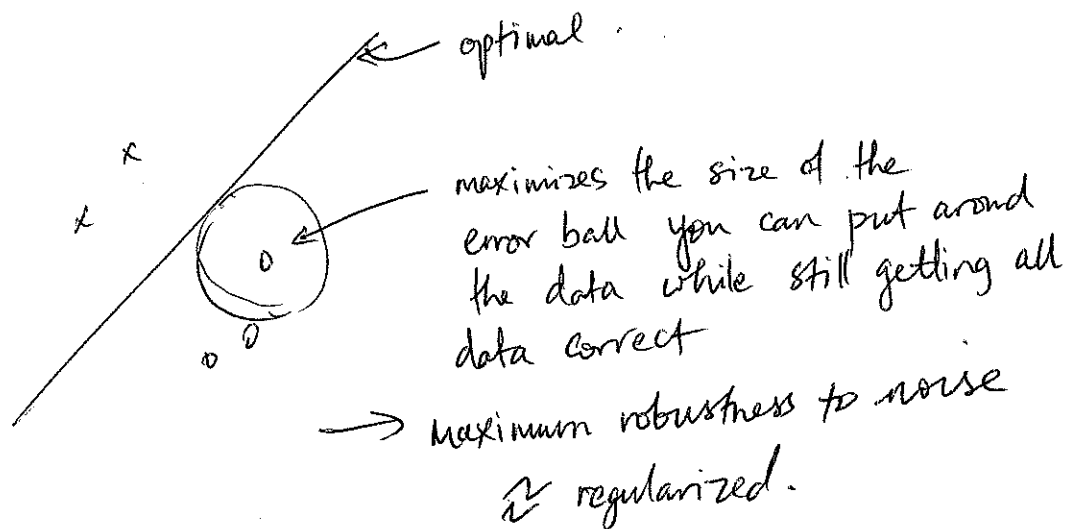 optimal.
x
x
o
o
o
maximizes the size of the
error ball you can put around
the data while still getting all
data correct
→ Maximum robustness to noise
≈ regularized.